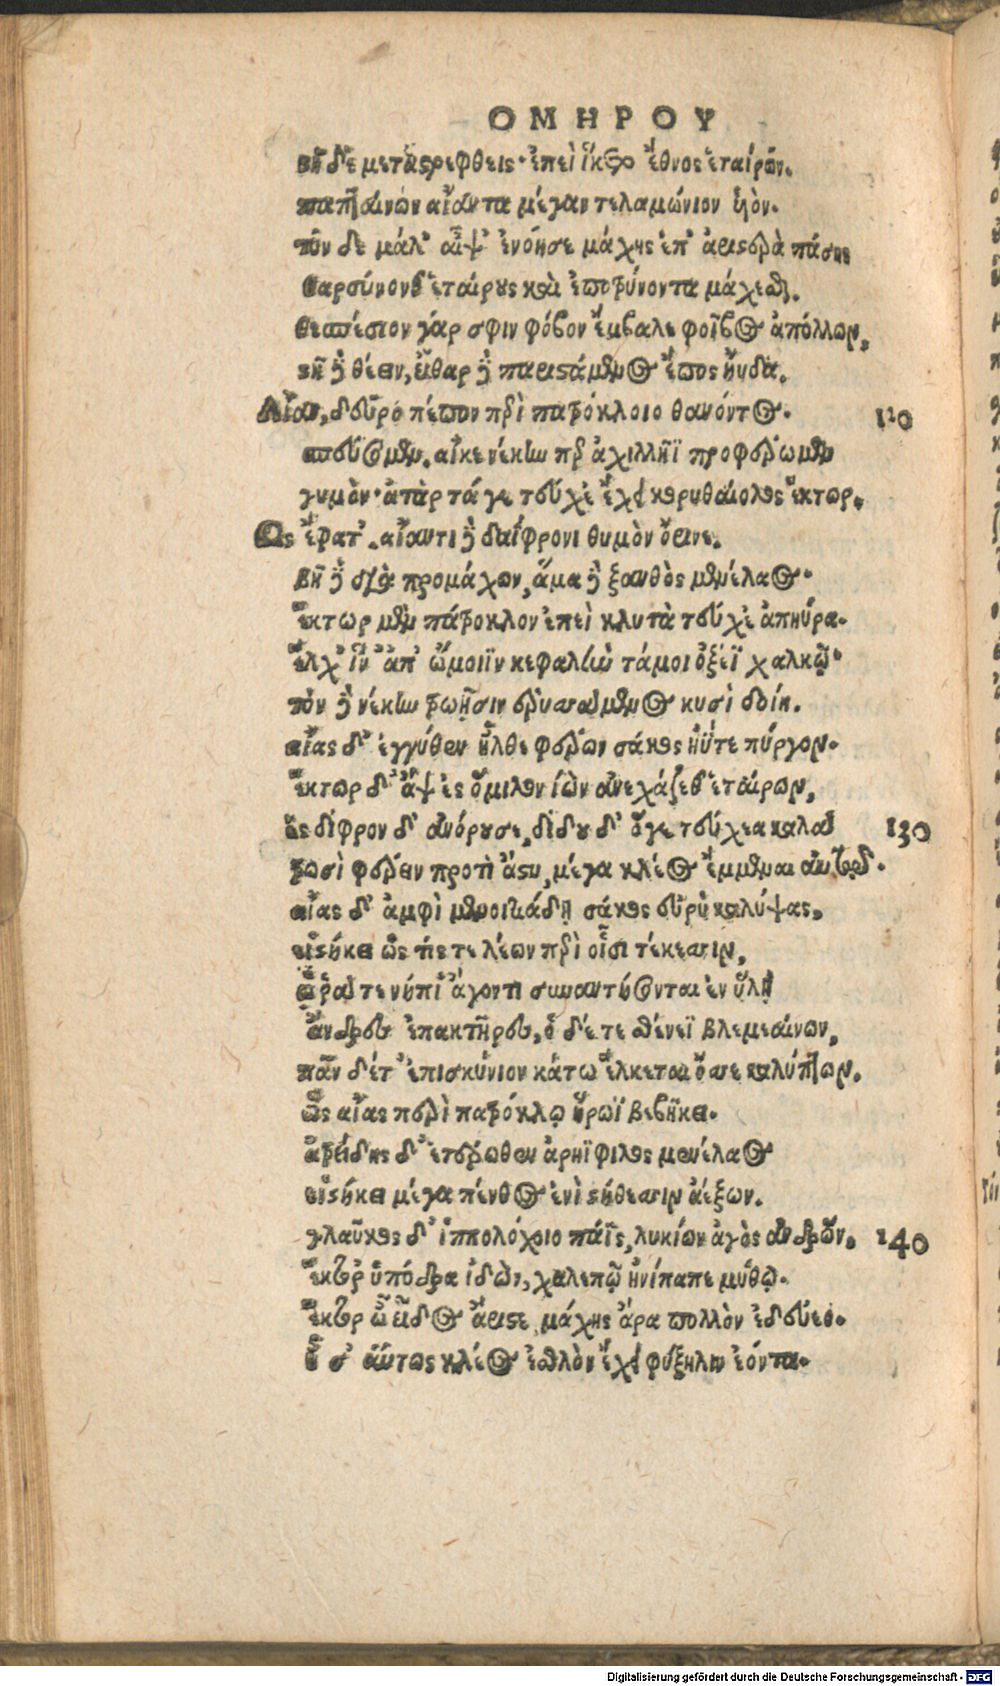 ΟΜΗΡΟΥ
βῆ δὲ μεταστρεφθεὶς· ἐπεὶ ἵκετο ἔθνος ἑταίρων.
παπταίνων αἴαντα μέγαν τελαμώνιον υἱὸν.
τὸν δὲ μάλ' αἶψ' ἐνόησε μάχης ἐπ' ἀριστερὰ πάσης
θαρσύνονθ' ἑτάρους καὶ ἐποτρύνοντα μάχεσθαι.
θεσπέσιον γάρ σφιν φόβον ἔμβαλε φοῖβος ἀπόλλων,
βῆ δὲ θέειν, εἶθαρ δὲ παριστάμενος ἔπος ηὔδα.
Αἶαν, δεῦρο πέπον περὶ πατρόκλοιο θανόντος. 120
σπεύσομεν. αἴκε νέκυν περ ἀχιλλῆϊ προφέρωμεν
γυμνόν· ἀτὰρ τάγε τεύχε' ἔχει κορυθαίολος ἕκτωρ.
Ως ἔφατ'. αἴαντι δὲ δαΐφρονι θυμὸν ὄρινε.
βῆ δὲ διὰ προμάχων, ἅμα δὲ ξανθὸς μενέλαος.
ἕκτωρ μὲν πάτροκλον ἐπεὶ κλυτὰ τεύχε' ἀπηύρα.
ἕλχ' ἵν' ἀπ' ὤμοιϊν κεφαλὴν τάμοι ὀξέϊ χαλκῷ.
τὸν δὲ νέκυν τρωῇσιν ἐρυσσάμενος κυσὶ δοίη.
αἴας δ' ἐγγύθεν ἦλθε φέρων σάκος ἠΰτε πύργον.
ἕκτωρ δ' ἂψ ἐς ὅμιλον ἰὼν ἀνεχάζεθ' ἑταίρων,
ἐς δίφρον δ' ἀνόρουσε, δίδου δ' ὅγε τεύχεα καλὰ 130
τρωσὶ φέρειν προτὶ ἄστυ, μέγα κλέος ἔμμεναι αὐτῷ.
αἴας δ' ἀμφὶ μενοιτιάδῃ σάκος εὐρὺ καλύψας,
εἱστήκει ὥς τίς τε λέων περὶ οἷσι τέκεσσιν,
ᾧ ῥά τε νήπι' ἄγοντι συναντήσονται ἐν ὕλῃ
ἄνδρες ἐπακτῆρες, ὁ δέ τε σθένεϊ βλεμεαίνων,
πᾶν δέτ' ἐπισκύνιον κάτω ἕλκεται ὄσσε καλύπτων.
ὣς αἴας περὶ πατρόκλῳ ἥρωϊ βεβήκει.
ἀτρείδης δ' ἑτέρωθεν ἀρηΐφιλος μενέλαος
εἱστήκει μέγα πένθος ἐνὶ στήθεσσιν ἀέξων.
γλαῦκος δ' ἱππολόχοιο πάϊς, λυκίων ἀγὸς ἀνδρῶν. 140
ἕκτορ' ὑπόδρα ἰδὼν, χαλεπῷ ἠνίπαπε μύθῳ.
ἕκτορ ὦ εἶδος ἄριστε, μάχης ἄρα πολλὸν ἐδεύεο.
ἦ σ' αὔτως κλέος ἐσθλὸν ἔχει φύξηλιν ἐόντα.
Digitalisierung gefördert durch die Deutsche Forschungsgemeinschaft - DFG